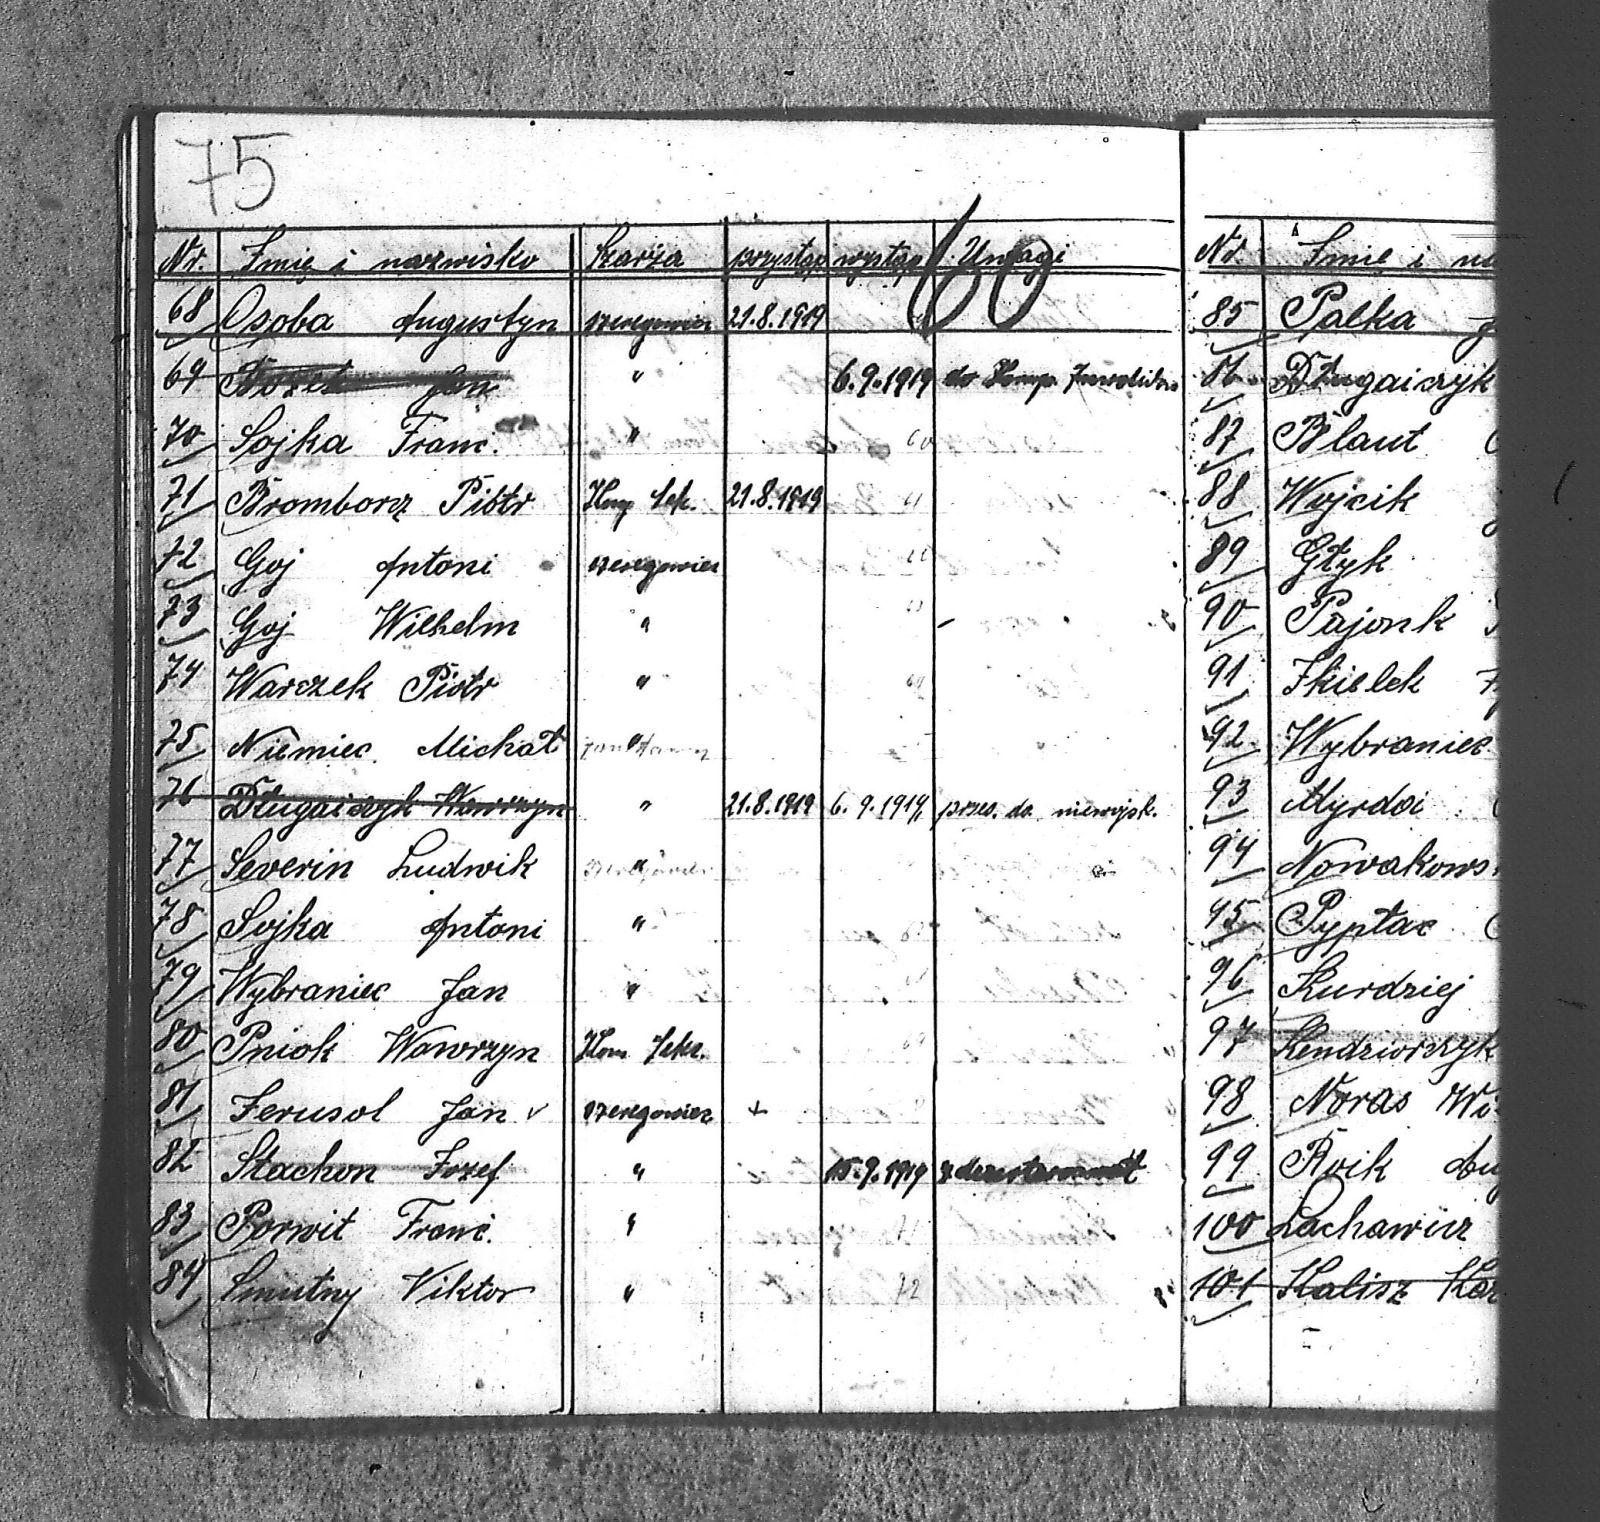 75
60
Nr. Imię i nazwisko Szarża przystąp wystąp Uwagi
68 Osoba Augustyn szeregowiec 21.8.1919
69 Jan " 6.9.1919 do Komp.
70 Sojka Franc. "
71 Bromborz Piotr Komp 21.8.1919
72 Goj Antoni szeregowiec
73 Goj Wilhelm "
74 Warszek Piotr "
75 Niemiec Michał "
76 Długaiczyk Wawrzyn " 21.8.1919 6.9.1919 do niewojsk.
77 Severin Ludwik "
78 Sojka Antoni "
79 Wybraniec Jan "
80 Pniok Wawrzyn Kom
81 Jerusol Jan v szeregowiec +
82 Stachon Jozef " 15.9.1919
83 Porwit Franc. "
84 Smutny Viktor "
Nr Imię i
85 Palka
86 Długaiczyk
87 Blaut
88 Wojcik
89 Głyk
90 Pajonk
91 Skielek
92 Wybraniec
93 Myrdoi
94 Nowakows
95 Pyptac
96 Kurdziej
97 Kendziorczyk
98 Noras
99
100 Lachawicz
101 Kalisz